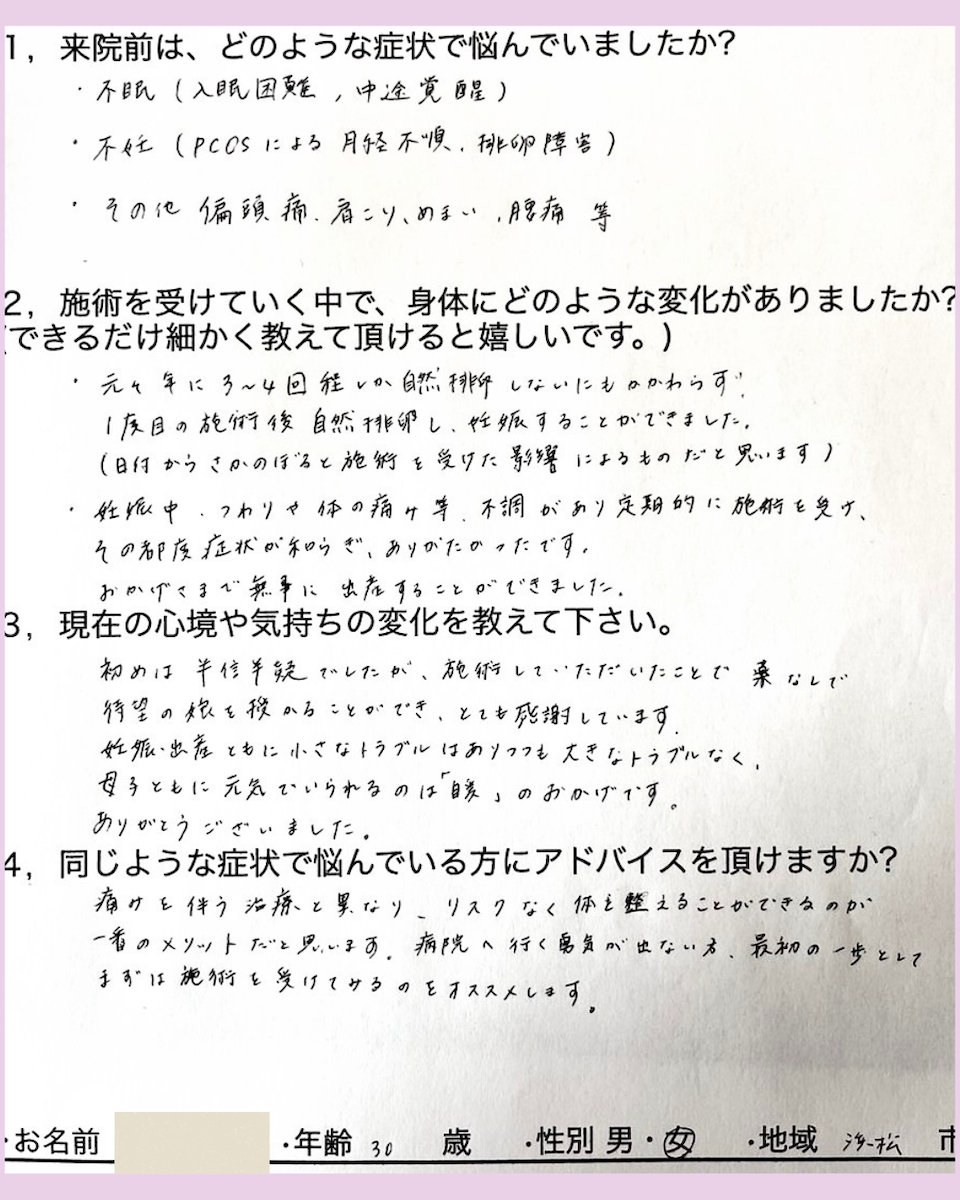 1，来院前は、どのような症状で悩んでいましたか?
・不眠（入眠困難，中途覚醒）
・不妊（PCOSによる月経不順、排卵障害）
・その他 偏頭痛、肩こり、めまい、腰痛 等
2，施術を受けていく中で、身体にどのような変化がありましたか?
(できるだけ細かく教えて頂けると嬉しいです。)
・元々年に3～4回程しか自然排卵しないにもかかわらず、
1度目の施術後自然排卵し、妊娠することができました。
（日付からさかのぼると施術を受けた影響によるものだと思います）
・妊娠中、つわりや体の痛み等、不調があり定期的に施術を受け、
その都度症状が和らぎ、ありがたかったです。
おかげさまで無事に出産することができました。
3，現在の心境や気持ちの変化を教えて下さい。
初めは半信半疑でしたが、施術していただいたことで薬なしで
待望の娘を授かることができ、とても感謝しています。
妊娠・出産ともに小さなトラブルはありつつも大きなトラブルなく、
母子ともに元気でいられるのは「暖」のおかげです。
ありがとうございました。
4，同じような症状で悩んでいる方にアドバイスを頂けますか?
痛みを伴う治療と異なり、リスクなく体を整えることができるのが
一番のメリットだと思います。病院へ行く勇気が出ない方、最初の一歩として
まずは施術を受けてみるのをオススメします。
・お名前 ・年齢 30 歳 ・性別 男・女 ・地域 浜松 市